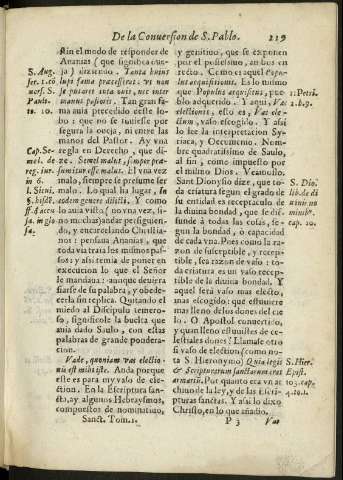 De la Conuersion de S. Pablo. 219
sin el modo de responder de
Ananias (que significa oue-
ja) diziendo. Tanta huius
lupi fama præcesserat: vt non
se putaret tuta ouis, nec inter
manus pastoris. Tan gran fa-
ma auia precedido deste lo-
bo: que no se tuuiesse por
segura la oueja, ni entre las
manos del Pastor. Ay vna
regla en Derecho, que di-
ze. Semel malus, semper præ-
sumitur esse malus. El vna vez
malo, siempre se presume ser
malo. Lo qual ha lugar, In
eodem genere delicti. Y como
lo auia visto (no vna vez, si-
no muchas) andar persiguien-
do, y encarcelando Christia-
nos: pensaua Ananias, que
toda via traîa los mismos pas-
sos: y assi temia de poner en
execucion lo que el Señor
le mandaua: aunque deuiera
fiarse de su palabra, y obede-
cerla sin replica. Quitando el
miedo al Discipulo temero-
so, significole la buelta que
auia dado Saulo, con estas
palabras de grande pondera-
cion.
Vade, quoniam vas electio-
nis est mihi iste. Anda porque
este es para my vaso de ele-
ction. En la Escriptura san-
cta, ay algunos Hebraysmos,
compuestos de nominatiuo,
S. Aug.
ser. 1. cō
uers. S.
Pauli.
to. 10.
Cap. Se-
mel. de
reg. iur.
in 6.
Sanct. Tom. 1.
y genitiuo, que se exponen
por el possessiuo, ambos en
recto. Como es aquel Popu-
lus acquisitionis. Es lo mismo
que Populus acquisitus, pue-
blo adquerido. Y aqui, Vas
electionis, esto es, Vas ele-
ctum, vaso escogido. Y assi
lo lee la interpretacion Sy-
riaca, y Oecumenio. Nom-
bre quadratissimo de Saulo,
al fin, como impuesto por
el mismo Dios. Veamoslo.
Sant Dionysio dize, que to-
da criatura segun el grado de
su entidad es receptaculo de
la diuina bondad, que se dif-
funde à todas las cosas, se-
gun la bondad, ò capacidad
de cada vna. Pues como la ra-
zon de susceptible, y recepti-
ble, sea razon de vaso: to-
da criatura es vn vaso recep-
tible de la diuina bondad. Y
aquel serà vaso mas electo,
mas escogido: que estuuiere
mas lleno de los dones del cie
lo. O Apostol conuertido,
y quan lleno estuuistes de ce-
lestiales dones! Llamase otro
si vaso de election (como no-
ta S. Hieronymo) Quia legis
& Scripturarum sanctarum erat
armariū. Por quanto era vn ar
chiuo de la ley, y de las Escri-
pturas sanctas. Y assi lo dixo
Christo, en lo que añadio.
1. Petri.
2. b. 9.
S. Dio.
lib. de di
uinis no
minib.
cap. 10.
S. Hier.
Epist.
103. cap.
4. to. 1.
P 3 Vas